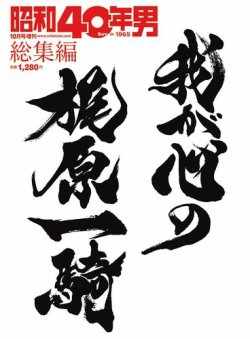 昭和40年男
Born in 1965
10月号増刊
総集編
定価1,280円
我が心の
梶原一騎